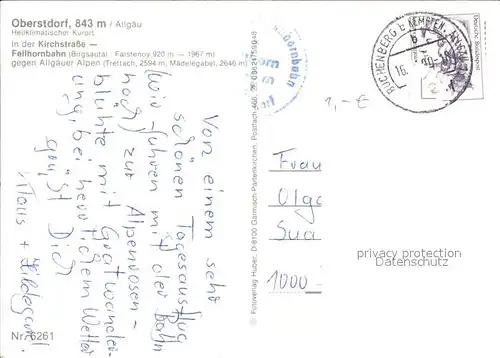 Oberstdorf, 843 m / Allgäu
Heilklimatischer Kurort
In der Kirchstraße —
Fellhornbahn (Birgsautal: Faistenoy 920 m — 1967 m)
gegen Allgäuer Alpen (Trettach, 2594 m, Mädelegabel, 2646 m)
Von einem sehr
schönen Tagesausflug
Wir fuhren mit der Bahn
hoch zur Alpenrosen-
blühte mit Gratwander-
ung, bei herrlichem Wetter
grüßt Dich
Klaus + Hildegard.
Nr. 6261
Fotoverlag Huber, D-8100 Garmisch-Partenkirchen, Postfach
BUCHENBERG b KEMPTEN, ALLGÄU
16.
Deutsche Bundespost
1,- €
Frau
Olga
1000
privacy protection
Datenschutz